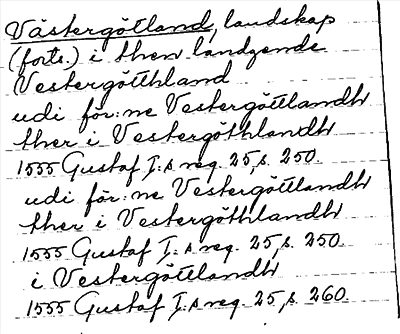 Västergötland, landskap
(forts.) i then landzende
Vestergötthland
udi för:ne Vestergöttlandh
ther i Vestergöthlandh
1555 Gustaf I:s reg. 25, s. 250.
udi för:ne Vestergöttlandh
ther i Vestergöthlandh
1555 Gustaf I:s reg. 25, s. 250
i Vestergöttlandh
1555 Gustaf I:s reg. 25, s. 260.